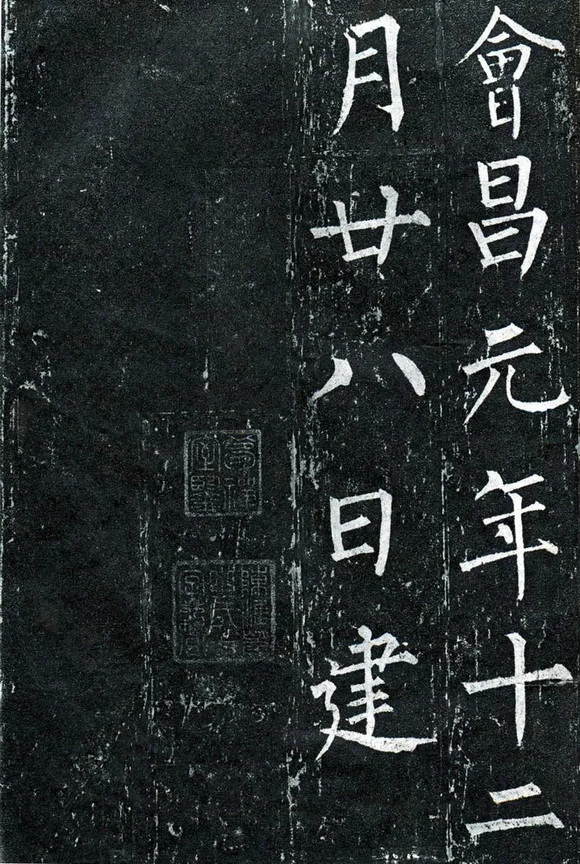 會昌元年十二
月廿八日建